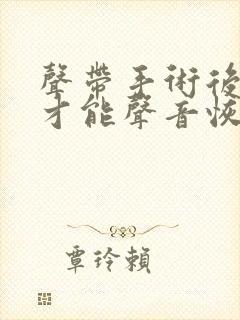 聲帶手術後
才能聲音恢
覃玲賴